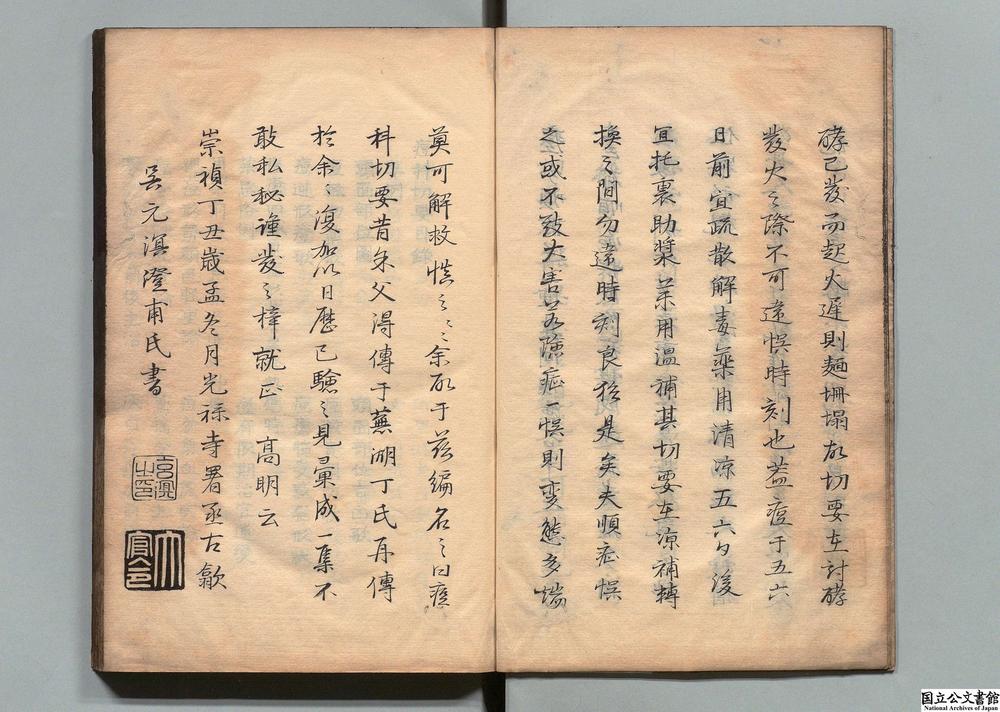 酵已發而起火遲則麵坍塌故切要在討酵
發火之際不可違悞時刻也蓋痘于五六
日前宜疏散解毒藥用清凉五六日後
宜托裏助漿藥用溫補其切要在凉補轉
換之間勿違時刻良猶是矣夫順症悞
之或不致大害若險症一悞則變態多端
莫可解救慎之〻余故于玆編名之曰痘
科切要昔朱父淂傳于蕪湖丁氏再傳
於余〻復加以日歷已驗之見彙成一集不
敢私秘謹發之梓就正 高明云
崇禎丁丑歲孟冬月光祿寺署丞古歙
吳元溟澄甫氏書
國立公文書館
National Archives of Japan